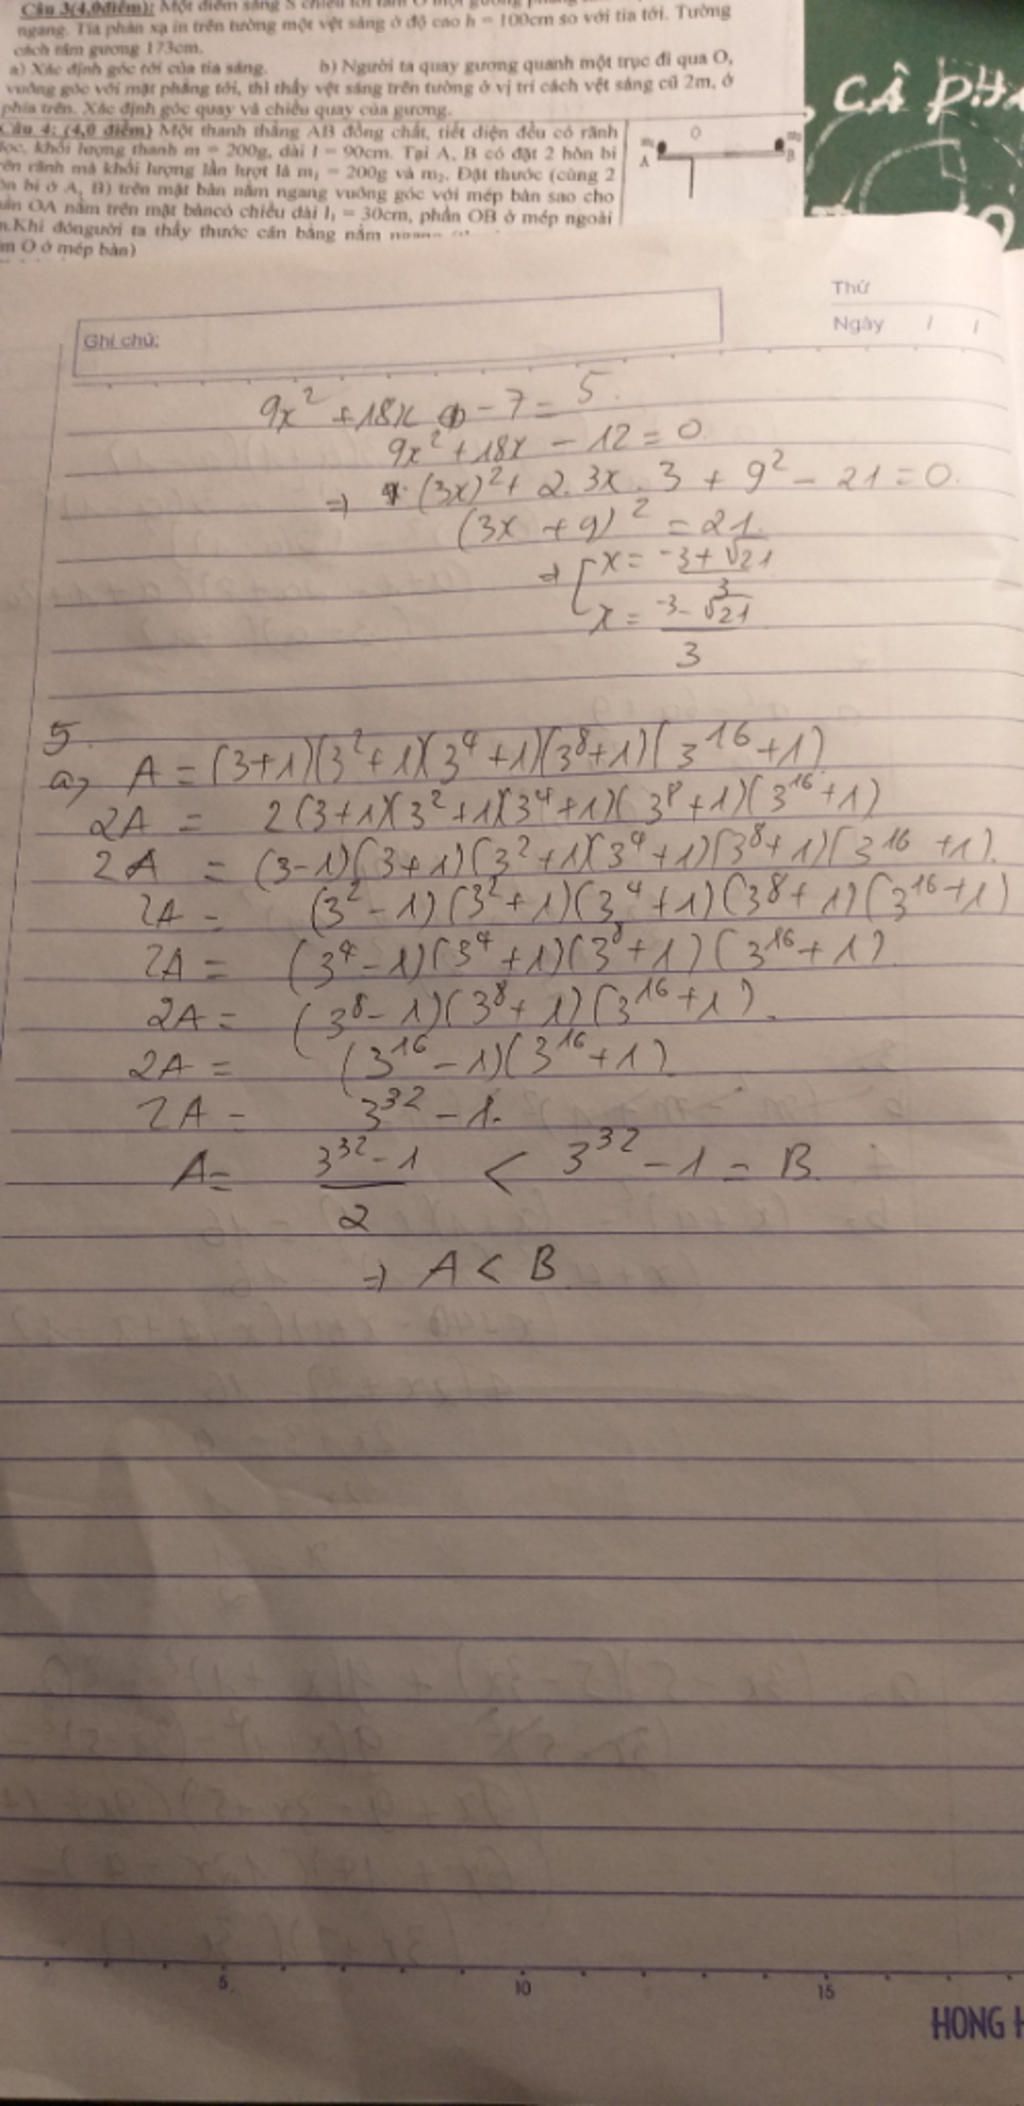 Câu 3(4,0điểm): Một điểm sáng S chiếu tới tâm O một gương phẳng
ngang. Tia phản xạ in trên tường một vệt sáng ở độ cao h = 100cm so với tia tới. Tường
cách tâm gương 173cm.
a) Xác định góc tới của tia sáng. b) Người ta quay gương quanh một trục đi qua O,
vuông góc với mặt phẳng tới, thì thấy vệt sáng trên tường ở vị trí cách vệt sáng cũ 2m, ở
phía trên. Xác định góc quay và chiều quay của gương.
Câu 4: (4,0 điểm) Một thanh thẳng AB đồng chất, tiết diện đều có rãnh
dọc, khối lượng thanh m = 200g, dài l = 90cm. Tại A, B có đặt 2 hòn bi
trên rãnh mà khối lượng lần lượt là m₁ = 200g và m₂. Đặt thước (cùng 2
hòn bi ở A, B) trên mặt bàn nằm ngang vuông góc với mép bàn sao cho
phần OA nằm trên mặt bàncó chiều dài l₁ = 30cm, phần OB ở mép ngoài
n.Khi đóngười ta thấy thước cân bằng nằm
m O ở mép bàn)
O
A
B
CÂ PH
Thứ
Ngày / /
Ghi chú:
9x² + 18x - 7 = 5.
9x² + 18x - 12 = 0
=> (3x)² + 2.3x.3 + 9² - 21 = 0.
(3x + 9)² = 21
=> [ x = -3+√21 / 3
x = -3-√21 / 3
5.
a, A = (3+1)(3²+1)(3⁴+1)(3⁸+1)(3¹⁶+1)
2A = 2(3+1)(3²+1)(3⁴+1)(3⁸+1)(3¹⁶+1)
2A = (3-1)(3+1)(3²+1)(3⁴+1)(3⁸+1)(3¹⁶+1).
2A = (3²-1)(3²+1)(3⁴+1)(3⁸+1)(3¹⁶+1)
2A = (3⁴-1)(3⁴+1)(3⁸+1)(3¹⁶+1)
2A = (3⁸-1)(3⁸+1)(3¹⁶+1).
2A = (3¹⁶-1)(3¹⁶+1)
2A = 3³²-1.
A = 3³²-1 / 2 < 3³²-1 = B.
=> A < B
5 10 15
HONG H